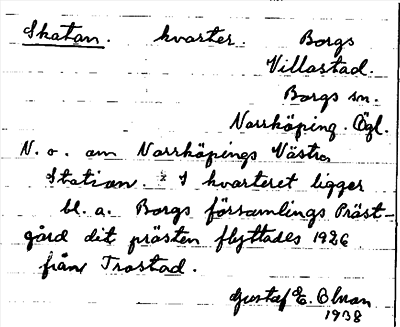 Skatan. kvarter Borgs
Villastad.
Borgs sn.
Norrköping. Ögl.
N. o. om Norrköpings Västra
Station. I kvarteret ligger
bl. a. Borgs församlings Präst-
gård dit prästen flyttades 1926
från Trostad.
Gustaf E.
1938